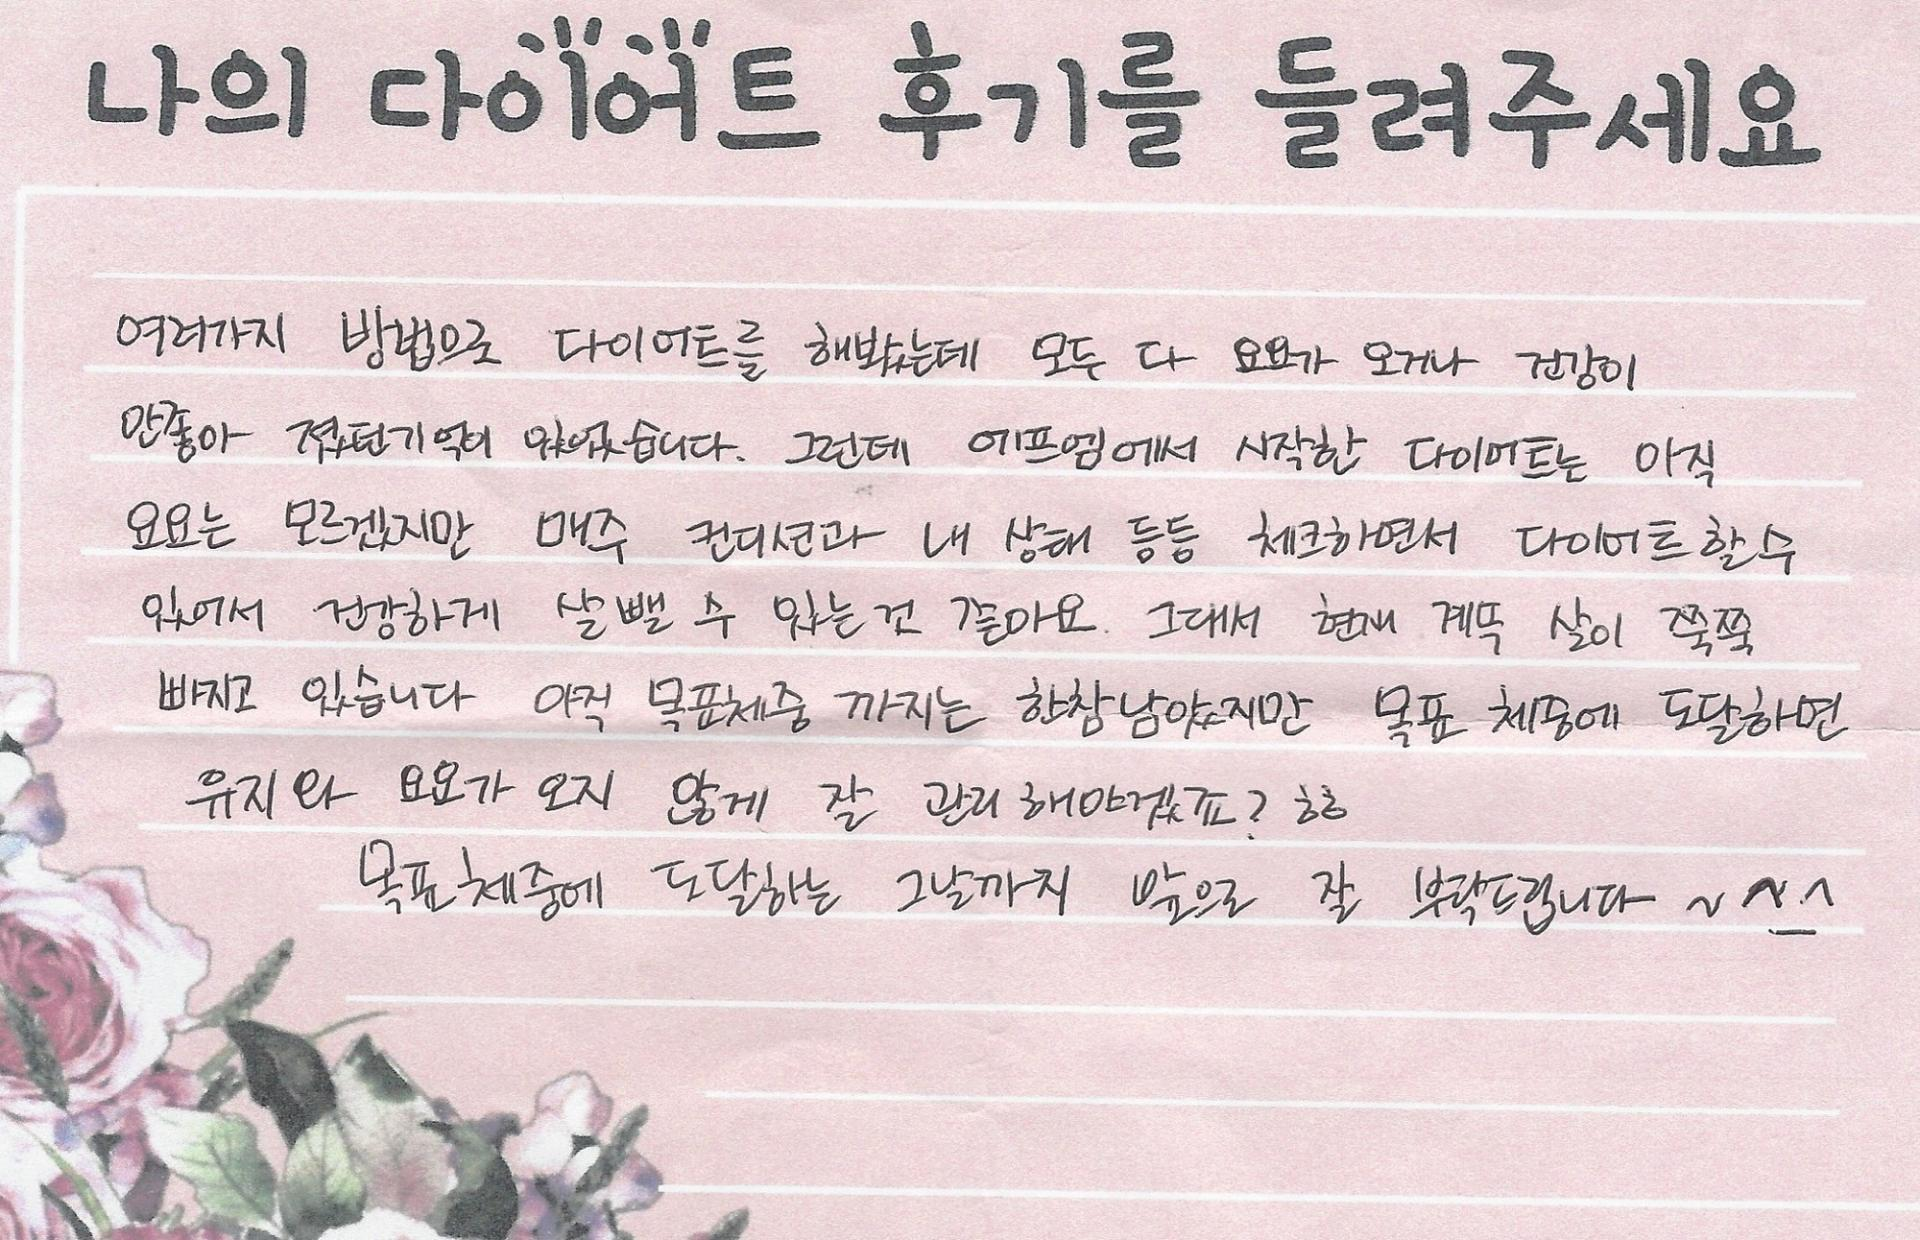 나의 다이어트 후기를 들려주세요
여러가지 방법으로 다이어트를 해봤는데 모두 다 요요가 오거나 건강이
안좋아 졌던기억이 있었습니다. 그런데 에프엠에서 시작한 다이어트는 아직
요요는 모르겠지만 매주 컨디션과 내 상태 등등 체크하면서 다이어트할수
있어서 건강하게 살뺄 수 있는것 같아요. 그래서 현재 계뚝 살이 쭉쭉
빠지고 있습니다 아직 목표체중 까지는 한참남았지만 목표 체중에 도달하면
유지와 요요가 오지 않게 잘 관리해야겠죠? ㅎㅎ
목표체중에 도달하는 그날까지 앞으로 잘 부탁드립니다 ~ ^.^